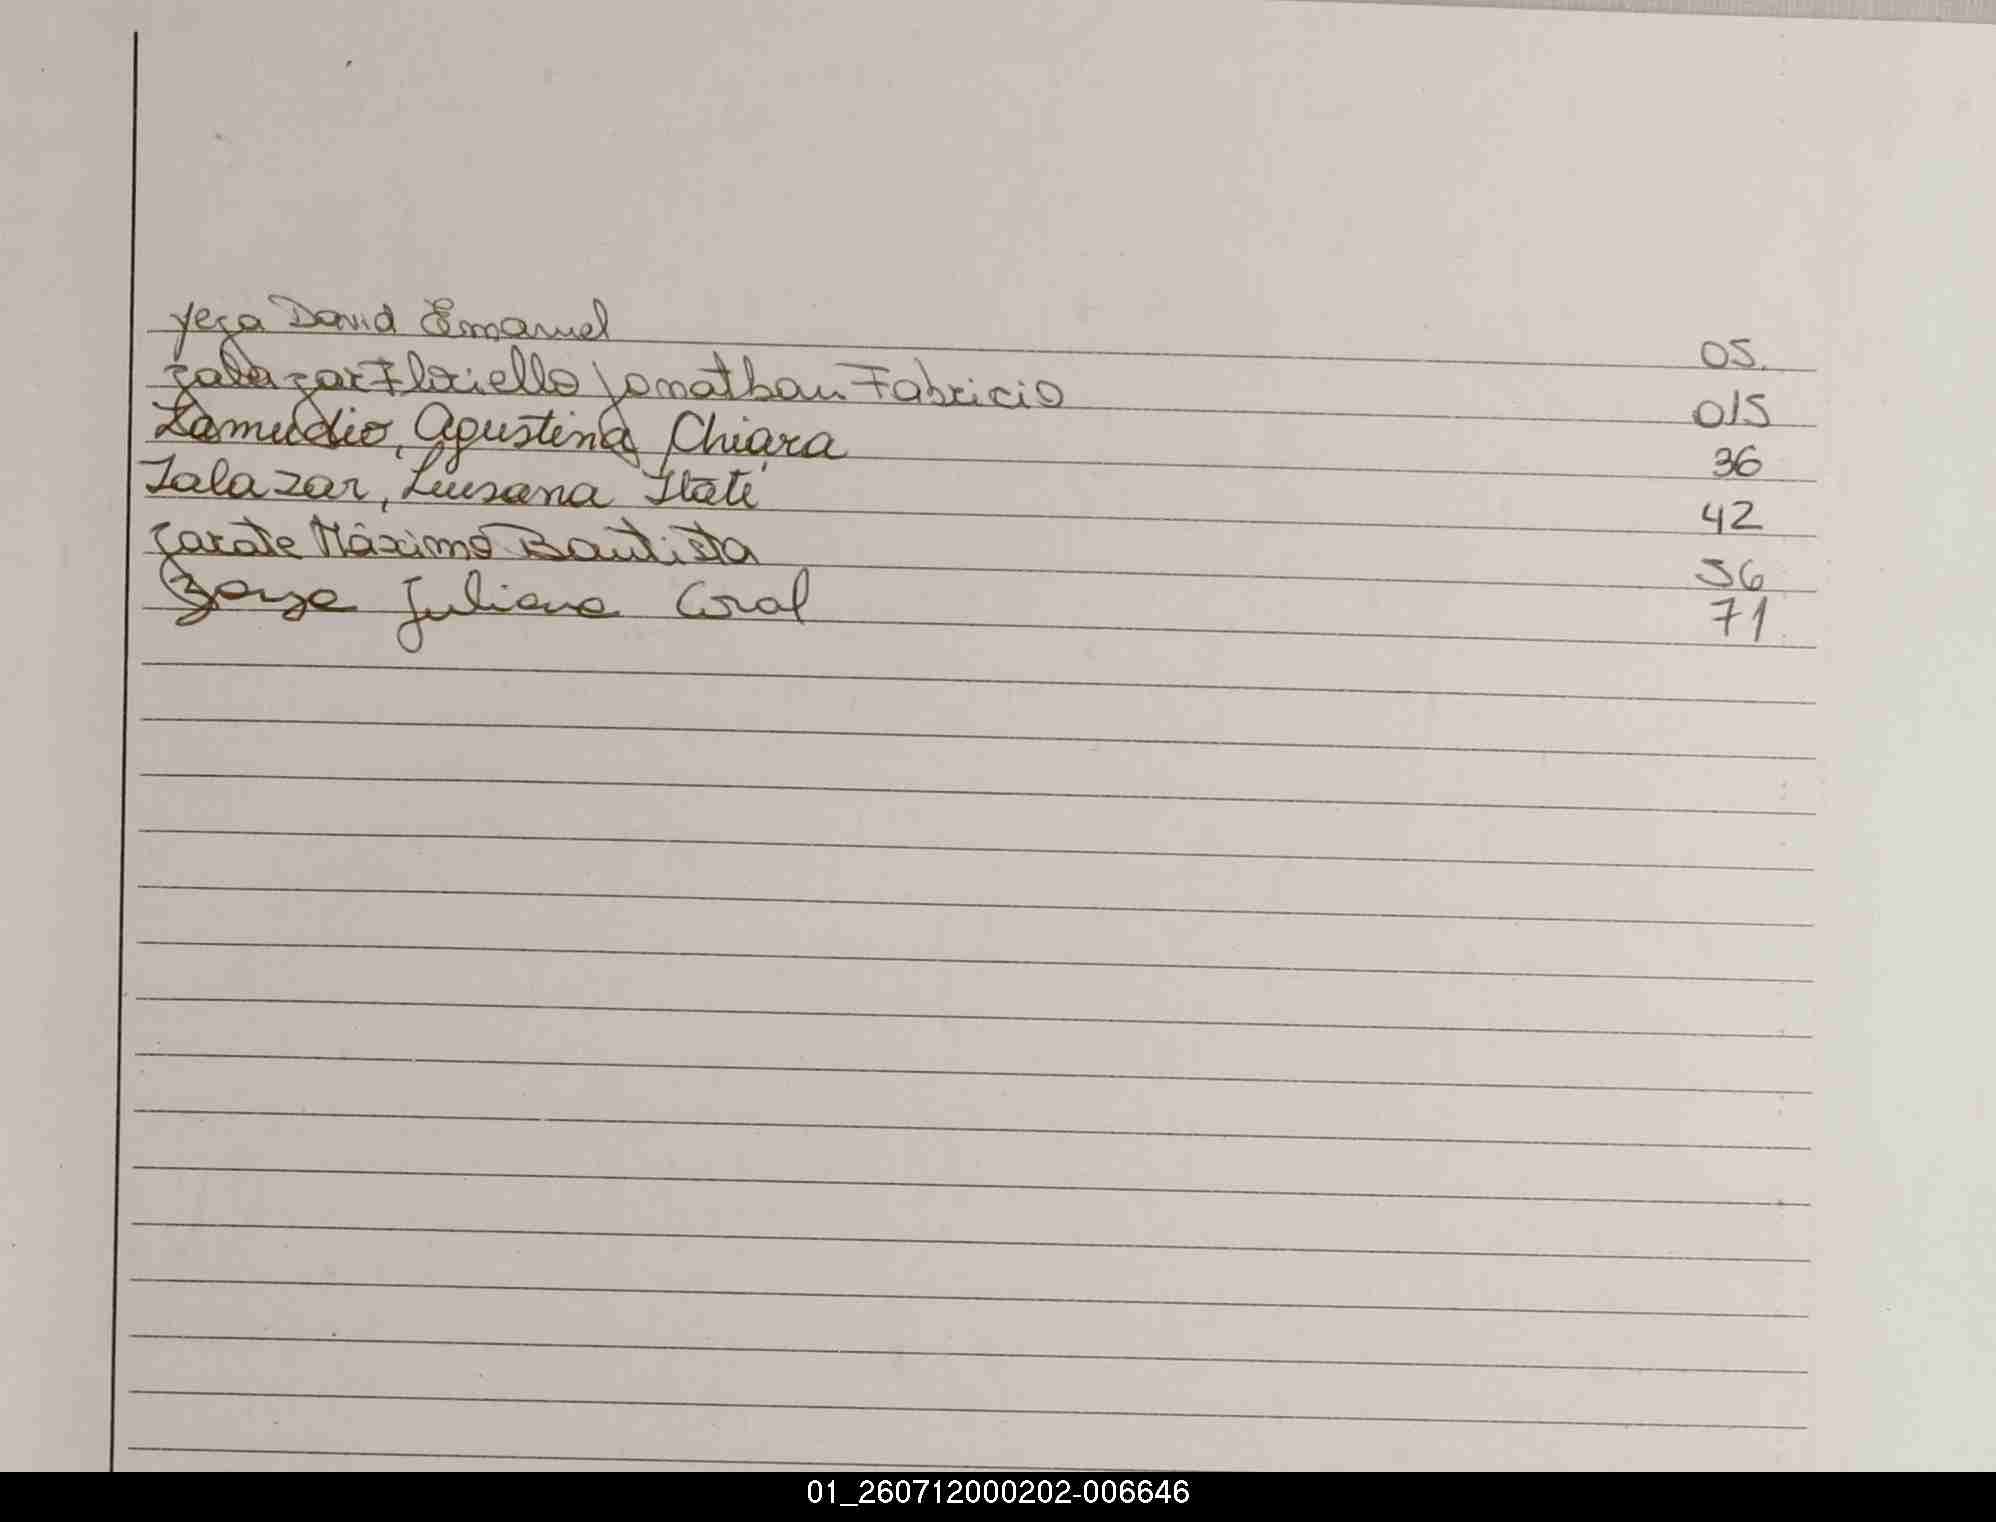 Vega David Emanuel 05.
Zalazar Floriello Jonathan Fabricio 015
Zamudio, Agustina Chiara 36
Zalazar, Luisana Itatí 42
Zarate Máximo Bautista 56
Zonza Juliana Coral 71
01_260712000202-006646